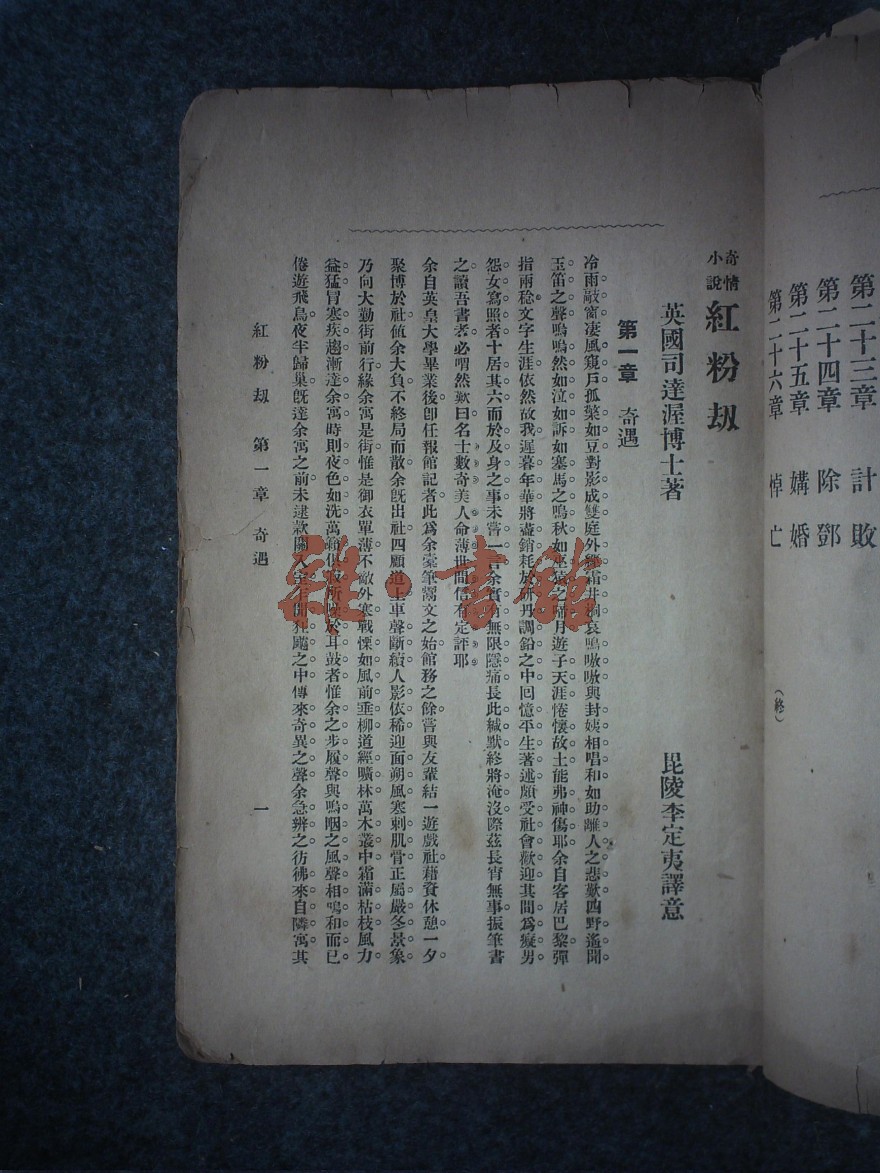 第二十三章　計敗
第二十四章　除鄧
第二十五章　媾婚
第二十六章　悼亡
（終）
奇情小說　紅粉刼
英國司達渥博士著　毘陵李定夷譯意
第一章　奇遇
冷雨敲窗凄風窺戶孤檠如豆對影成雙庭外霜井桐哀鳴嗷嗷與封姨相唱和如助離人之悲歎四野遙聞
玉笛之聲嗚嗚然如泣如訴如塞馬之鳴秋如巫猿之啼月遊子天涯惓懷故土能弗神傷耶余自客居巴黎彈
指兩稔文字生涯依然故我遲暮年華將盡銷耗於研丹調鉛之中回憶平生著述頗受社會歡迎其間爲癡男
怨女寫照者十居其六而於及身之事未嘗一言余實有無限隱痛長此緘默終將淹沒際茲長宵無事振筆書
之讀吾書者必喟然歎曰名士數奇美人命薄世間信有定評耶
余自英皇大學畢業後卽任報館記者此爲余橐筆鬻文之始館務之餘嘗與友輩結一遊戲社藉資休憩一夕
聚博於社値余大負不終局而散余旣出社四顧道上車聲斷續人影依稀迎面朔風寒刺肌骨正屬嚴冬景象
乃向大勤街前行緣余寓是街惟是御衣單薄不敵外寒戰慄如風前垂柳道經曠林萬木叢中霜滿枯枝風力
益猛冒寒疾趨漸達余寓時則夜色如洗萬籟俱寂所觸於耳鼓者惟余之步履聲與嗚咽之風聲相鳴和而已
倦遊飛鳥夜半歸巢旣達余寓之前未逮款關入室乍聞狂飈之中傳來奇異之聲余急辨之彷彿來自隣寓其
紅粉刼　第一章　奇遇　一
雜·書館